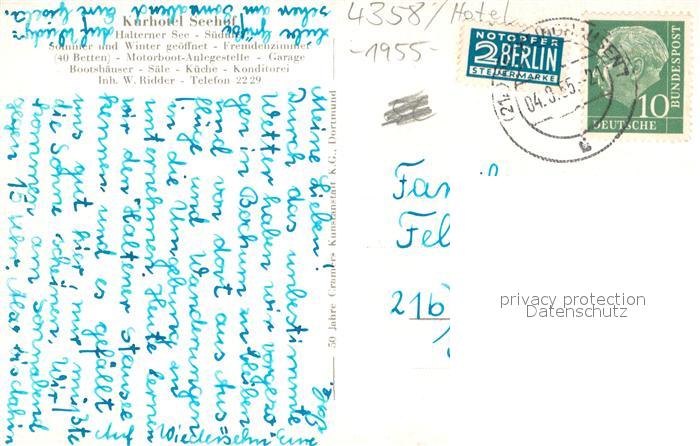 Kurhotel Seehof
Halterner See - Süduf
Sommer und Winter geöffnet - Fremdenzimmer
(40 Betten) - Motorboot-Anlegestelle - Garage
Bootshäuser - Säle - Küche - Konditorei
Inh. W. Ridder - Telefon 2229
Meine Lieben!
Durch das unbestimmte
Wetter haben wir vorgezo-
gen in Bochum zu bleiben
und von dort aus Aus-
flüge und Wanderungen
in die Umgebung zu
unternehmen. Heute lernen
wir den Halterner Stausee
kennen und es gefällt
uns gut hier; nur müßte
die Sonne scheinen. Wir
kommen am Sonnabend
gegen 15 Uhr. Also bis dahin
Auf Wiedersehn
50 Jahre Cramers Kunstanstalt K.G., Dortmund
4358/Hotel
-1955-
NOTOPFER
2 BERLIN
STEUERMARKE
DEUTSCHE BUNDESPOST
10
Fam
Fel
21b
privacy protection
Datenschutz